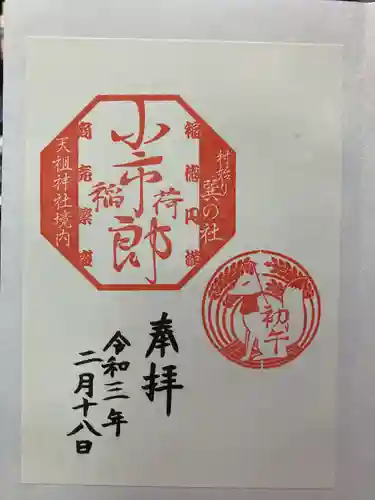 村始り
巽の社
小市郎
稲荷
商売繁盛
天祖神社境内
初午
奉拝
令和三年
二月十八日